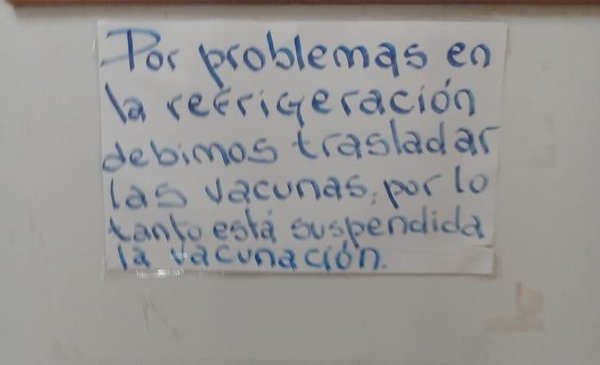 Por problemas en
la refrigeración
debimos trasladar
las vacunas, por lo
tanto está suspendida
la vacunación.